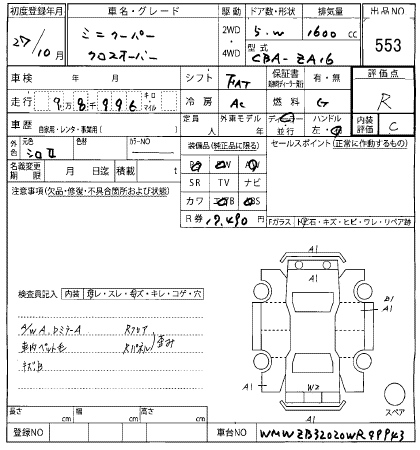 初度登録年月 車名・グレード 駆動 ドア数・形状 排気量 出品NO
27/10月 ミニクーパー クロスオーバー 2WD ・ 4WD 5.W 1600 cc 553
型式 CBA-ZA16
車検 年 月 シフト FAT 保証書 有・無 評価点
走行 9万8千996 キロ マイル 冷房 AC 燃料 G R
車歴 自家用・レンタ・事業用( ) 定員 人 外車モデル 年 ディーラー 並行 ハンドル 左・右 内装評価 C
外色 元色 シロII 色替 カラーNO 装備品(純正品に限る) セールスポイント(正常に動作するもの)
名義変更期限 月 日迄 積載 t PS PW AW
注意事項(欠品・修復・不具合箇所および状態) SR TV ナビ
カワ エアB ABS
R券 12,490円 Fガラス・飛石・キズ・ヒビ・ワレ・リペア跡
検査員記入 内装 汚レ・スレ・キズ・キレ・コゲ・穴
A/W A.ドミラーA Rフロア
車内ペット毛 Rパネル 歪み
キズ凹
A1
A1
B1
A1
A1
A1
W2
A1
スペア
長さ cm 幅 cm 高さ cm
登録NO 車台NO WMWZB32020WR99943